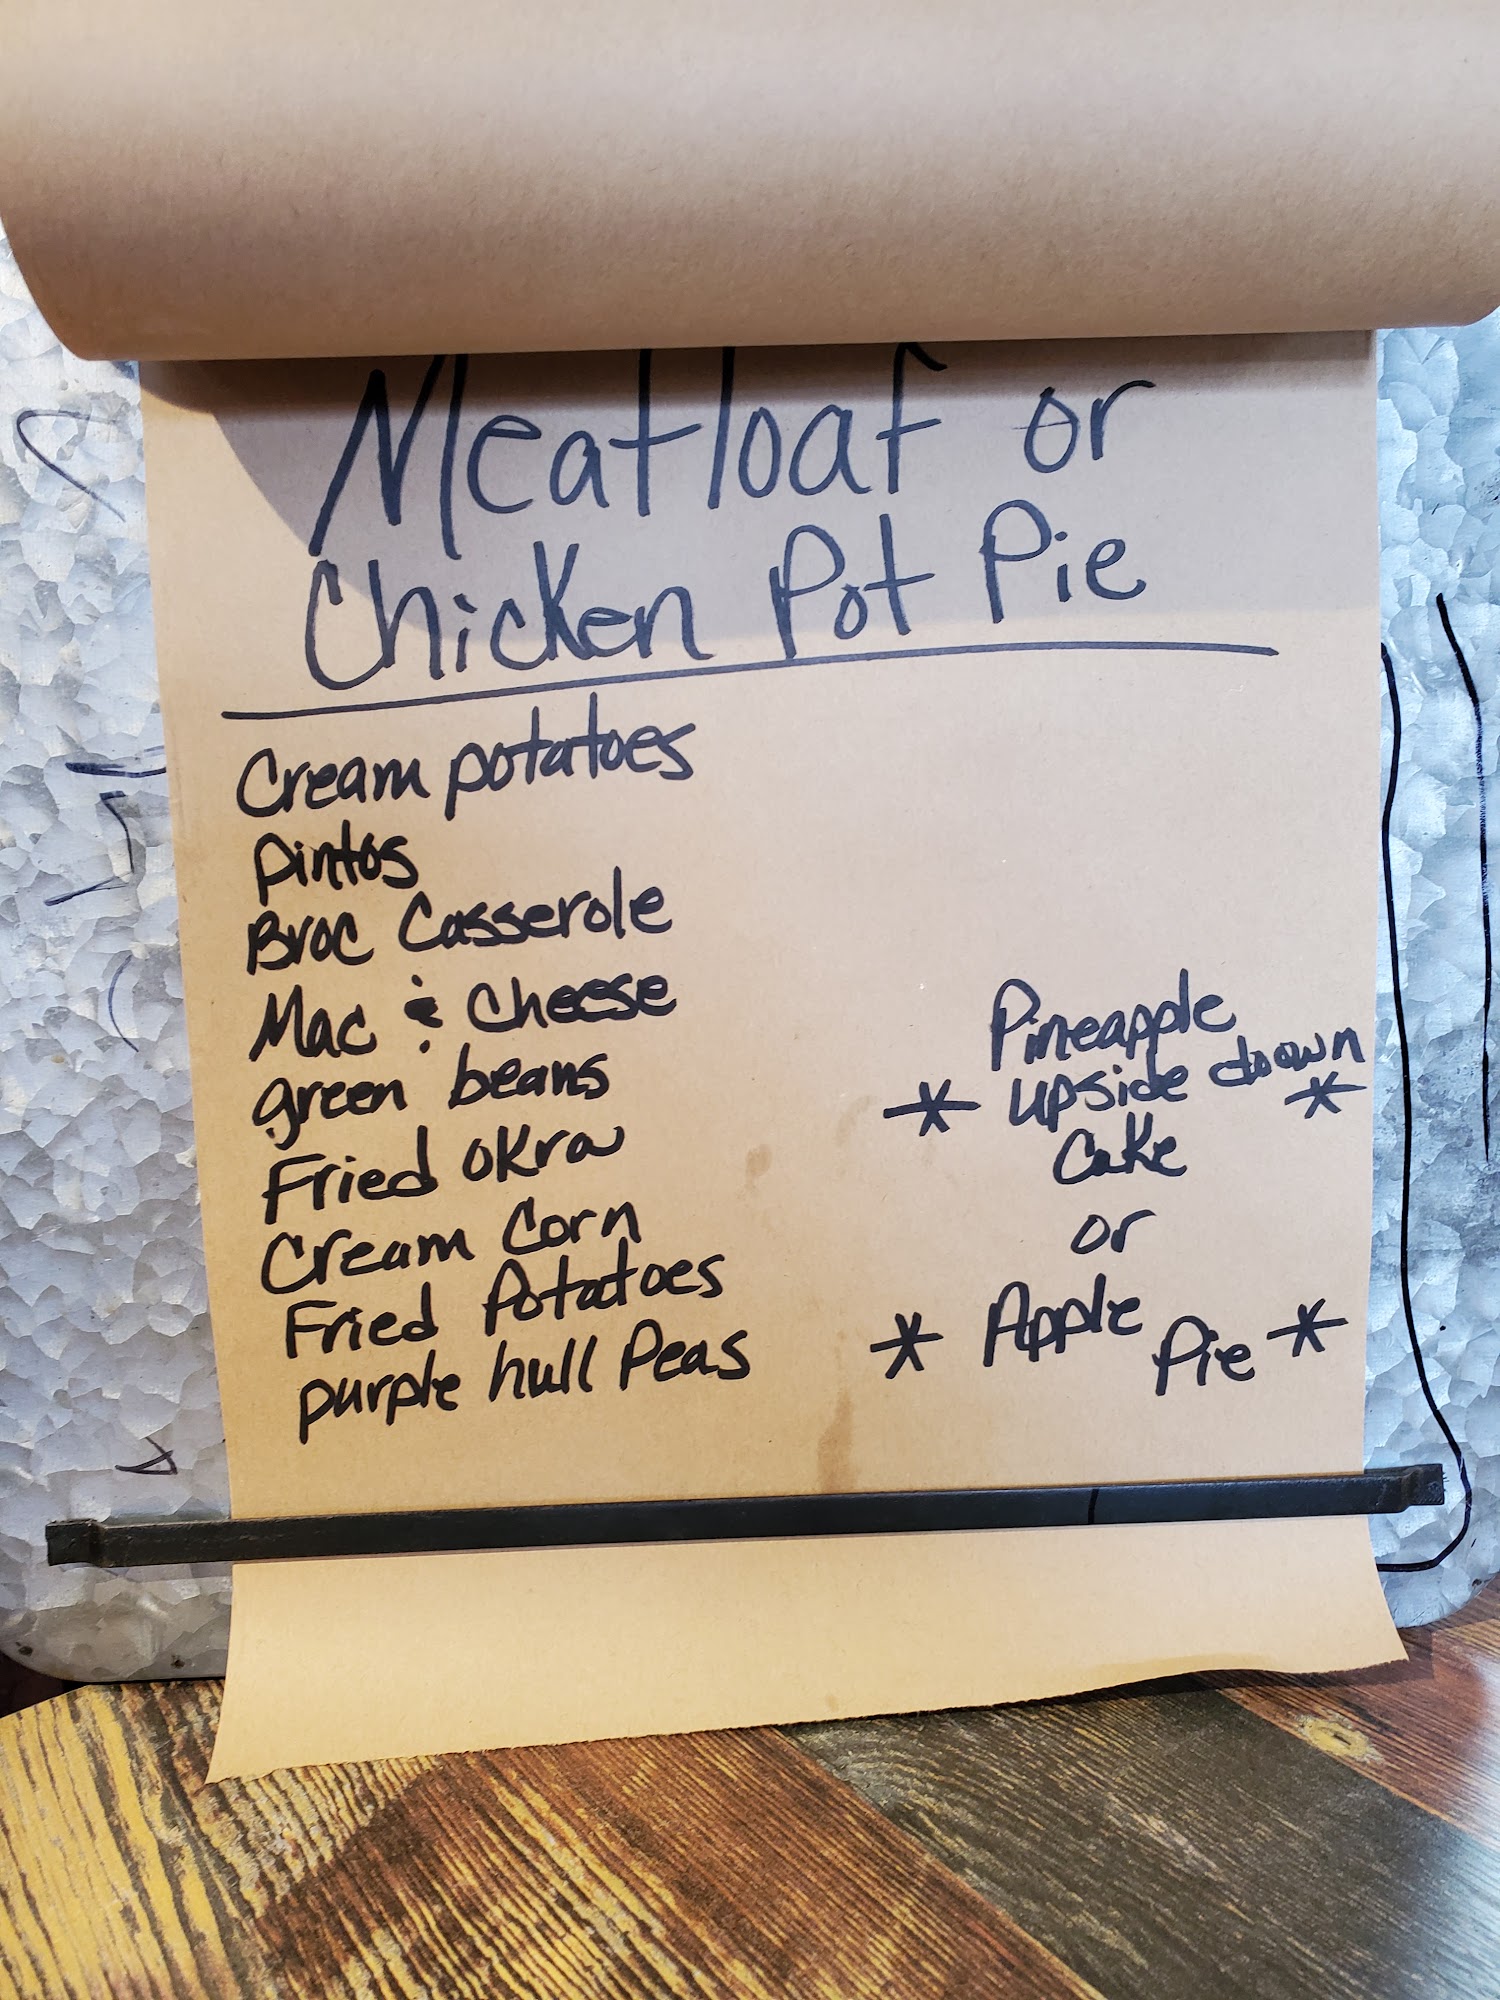 Meatloaf or
Chicken Pot Pie
Cream potatoes
pintos
Broc Casserole
Mac & Cheese
green beans
Fried okra
Cream Corn
Fried Potatoes
purple hull Peas
Pineapple
* upside down *
Cake
or
* Apple Pie *